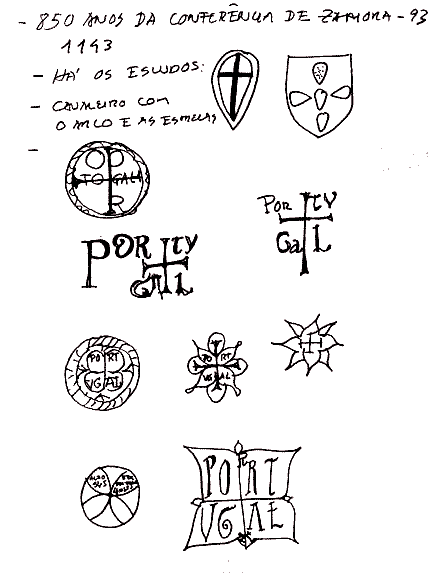 - 850 ANOS DA CONFERÊNCIA DE ZAMORA - 93
1143
- HÁ OS ESCUDOS:
- CAVALEIRO COM
O ARCO E AS ESTRELAS
-
PO
TO GALI
R
POR TV
GAL
POR TV
GAL
PO RT
VG AL
PO RT
VG AL
PO RT
VG AL